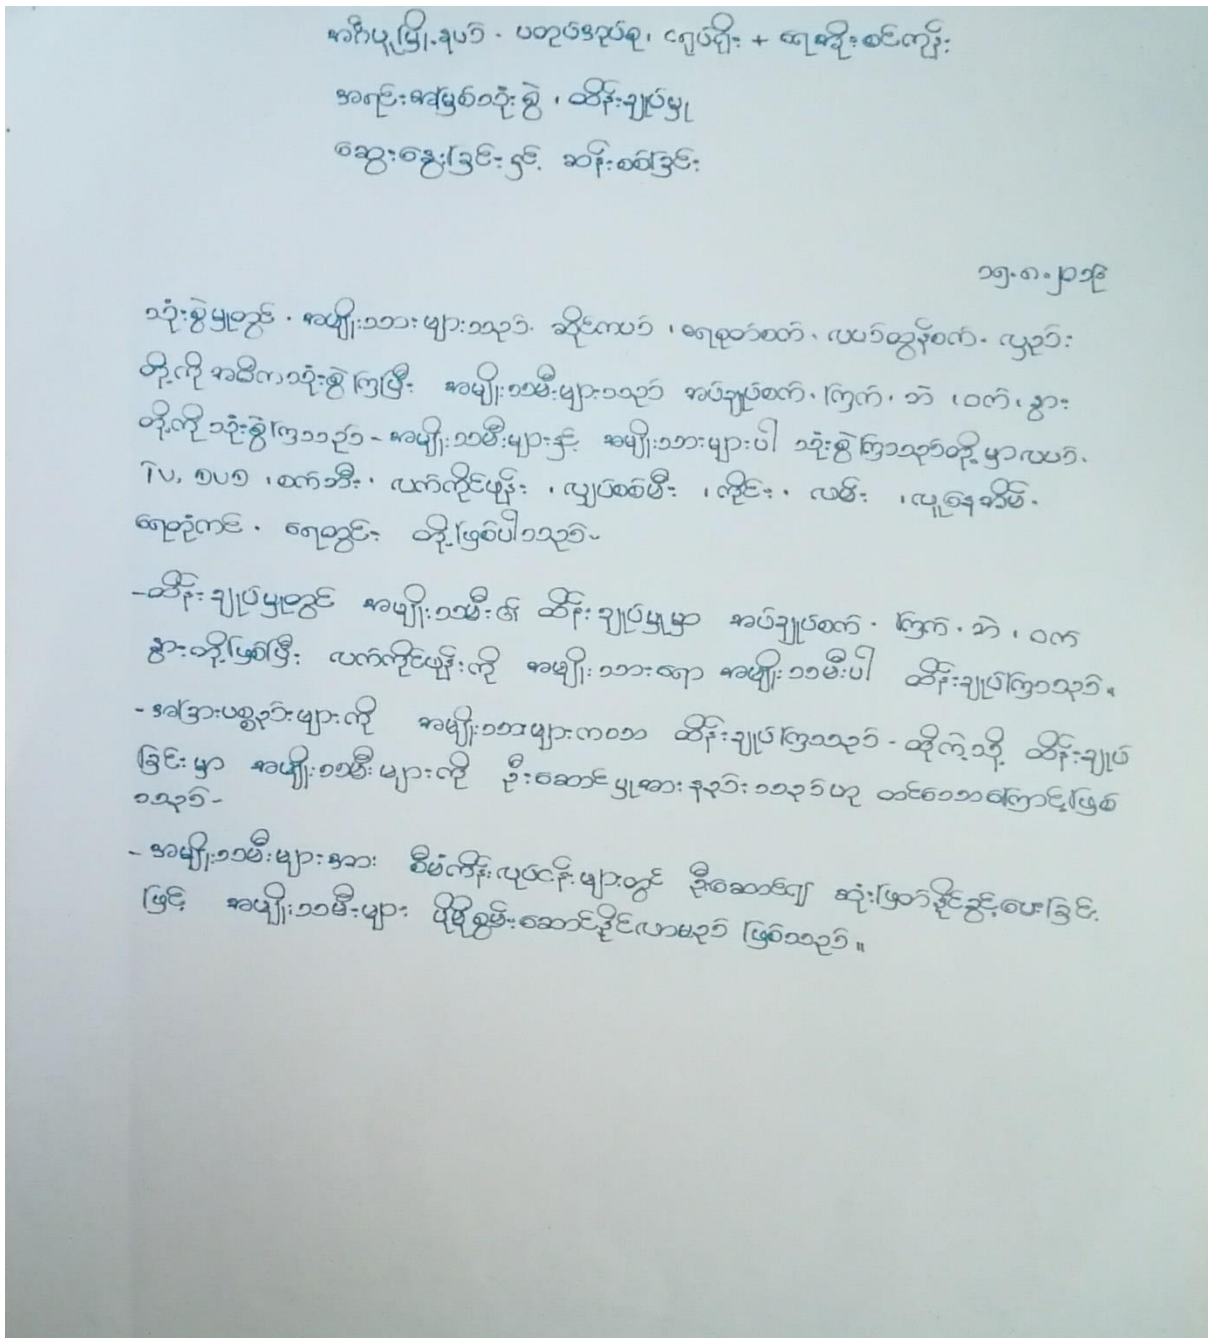 အင်္ဂပူမြို့နယ် - ပတုပ်အုပ်စု၊ ငရုပ်ရိုး + ရေအိုးစင်ကုန်း
အရင်းအမြစ်သုံးစွဲ ၊ ထိန်းချုပ်မှု
ဆွေးနွေးခြင်းနှင့် ဆန်းစစ်ခြင်း
၁၅.၈.၂၀၁၆
သုံးစွဲမှုတွင် - အမျိုးသားများသည် ဆိုင်ကယ် ၊ ရေစုတ်စက် ၊ လယ်ထွန်စက် ၊ လှည်း
တို့ကို အဓိကသုံးစွဲကြပြီး အမျိုးသမီးများသည် အပ်ချုပ်စက် ၊ ကြက် ၊ ဘဲ ၊ ဝက် ၊ နွား
တို့ကို သုံးစွဲကြသည် - အမျိုးသမီးများနှင့် အမျိုးသားများပါ သုံးစွဲကြသည်တို့မှာ လယ် ၊
TV, DVD ၊ စက်ဘီး ၊ လက်ကိုင်ဖုန်း ၊ လျှပ်စစ်မီး ၊ ကိုင်း ၊ လမ်း ၊ လူနေအိမ် ၊
ရေတုံကင် ၊ ရေတွင်း တို့ဖြစ်ပါသည် -
- ထိန်းချုပ်မှုတွင် အမျိုးသမီး၏ ထိန်းချုပ်မှုမှာ အပ်ချုပ်စက် ၊ ကြက် ၊ ဘဲ ၊ ဝက်
နွားတို့ဖြစ်ပြီး လက်ကိုင်ဖုန်းကို အမျိုးသားရော အမျိုးသမီးပါ ထိန်းချုပ်ကြသည် ။
- အခြားပစ္စည်းများကို အမျိုးသားများကသာ ထိန်းချုပ်ကြသည် - ထိုကဲ့သို့ ထိန်းချုပ်
ခြင်းမှာ အမျိုးသမီးများကို ဦးဆောင်မှုအားနည်းသည်ဟု ထင်သောကြောင့်ဖြစ်
သည် -
- အမျိုးသမီးများအား စီမံကိန်းလုပ်ငန်းများတွင် ဦးဆောင်၍ ဆုံးဖြတ်နိုင်ခွင့်ပေးခြင်း
ဖြင့် အမျိုးသမီးများ ပိုမိုစွမ်းဆောင်နိုင်လာမည် ဖြစ်သည် ။